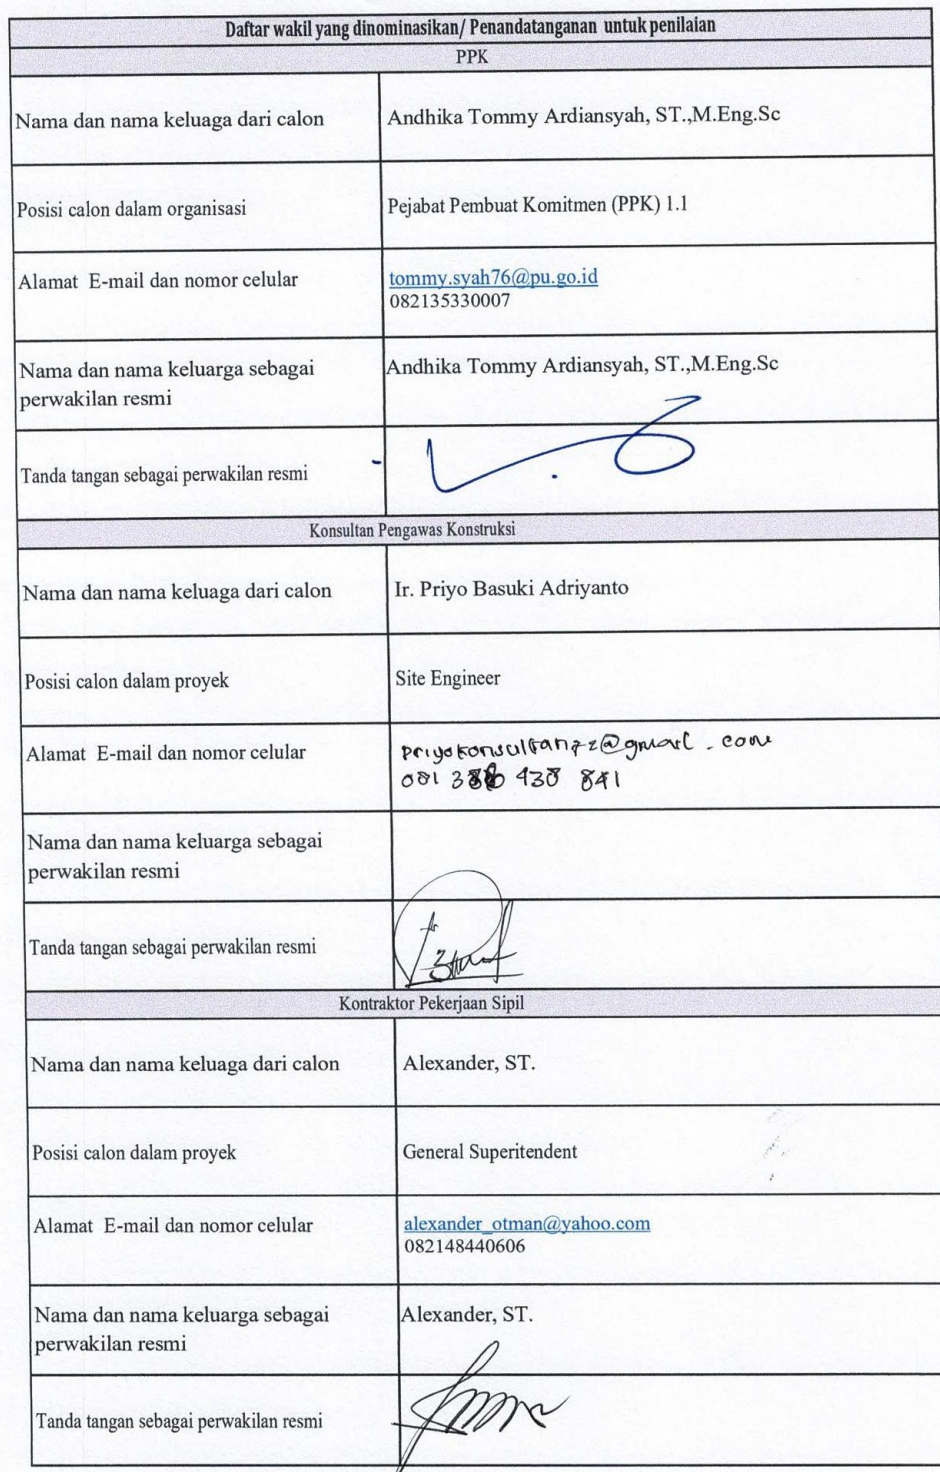 Daftar wakil yang dinominasikan/ Penandatanganan untuk penilaian
PPK
Nama dan nama keluaga dari calon
Andhika Tommy Ardiansyah, ST.,M.Eng.Sc
Posisi calon dalam organisasi
Pejabat Pembuat Komitmen (PPK) 1.1
Alamat E-mail dan nomor celular
tommy.syah76@pu.go.id
082135330007
Nama dan nama keluarga sebagai
perwakilan resmi
Andhika Tommy Ardiansyah, ST.,M.Eng.Sc
Tanda tangan sebagai perwakilan resmi
Konsultan Pengawas Konstruksi
Nama dan nama keluaga dari calon
Ir. Priyo Basuki Adriyanto
Posisi calon dalam proyek
Site Engineer
Alamat E-mail dan nomor celular
081 438 841
Nama dan nama keluarga sebagai
perwakilan resmi
Tanda tangan sebagai perwakilan resmi
Kontraktor Pekerjaan Sipil
Nama dan nama keluaga dari calon
Alexander, ST.
Posisi calon dalam proyek
General Superitendent
Alamat E-mail dan nomor celular
alexander_otman@yahoo.com
082148440606
Nama dan nama keluarga sebagai
perwakilan resmi
Alexander, ST.
Tanda tangan sebagai perwakilan resmi